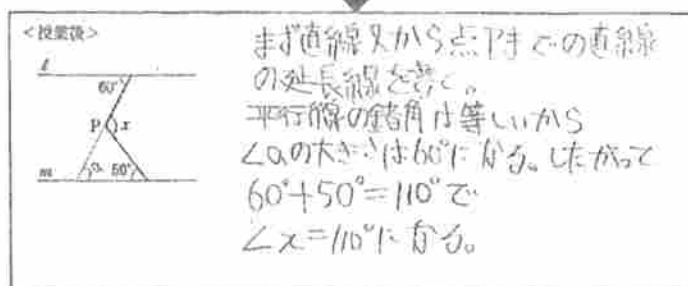 <授業後>
ℓ
60°
P
x
m
a
50°
まず直線ℓから点Pまでの直線
の延長線を書く。
平行線の錯角は等しいから
∠aの大きさは60°になる。したがって
60°+50°=110°で
∠x=110°になる。